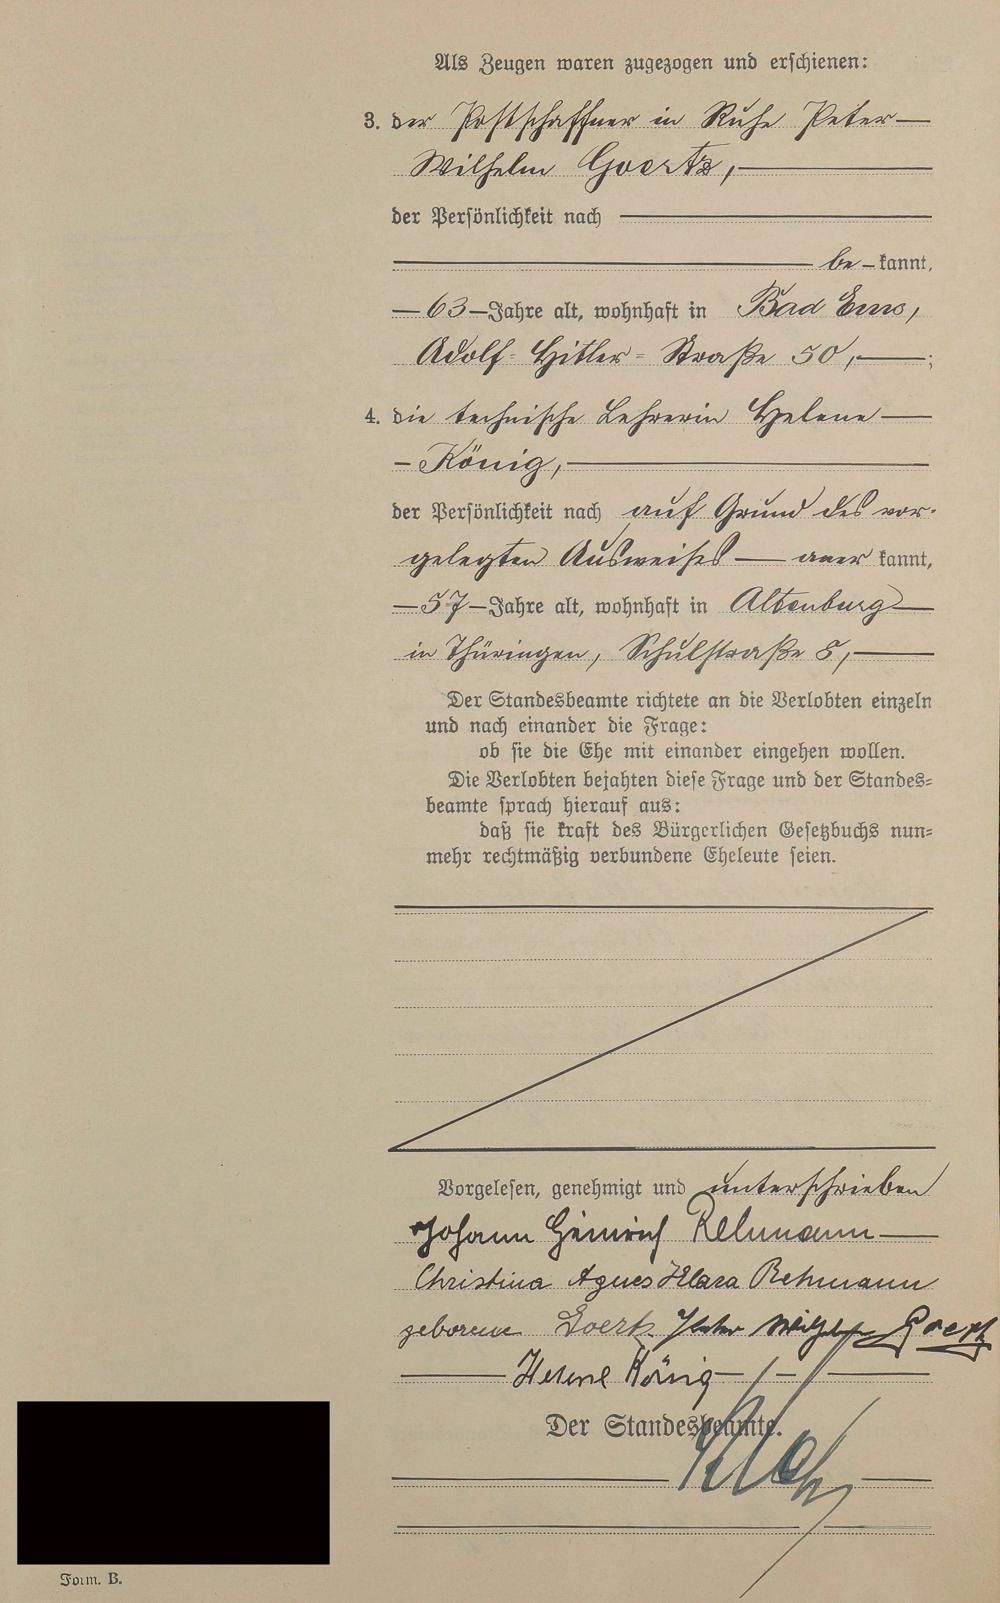 Als Zeugen waren zugezogen und erschienen:
3. der Postschaffner in Ruhe Peter
Wilhelm Goertz,
der Persönlichkeit nach
be-kannt,
63 Jahre alt, wohnhaft in Bad Ems,
Adolf-Hitler-Straße 50, ;
4. die technische Lehrerin Helene
König,
der Persönlichkeit nach auf Grund des vor-
gelegten Ausweises aner kannt,
57 Jahre alt, wohnhaft in Altenburg
in Thüringen, Schulstraße 8,
Der Standesbeamte richtete an die Verlobten einzeln
und nach einander die Frage:
ob sie die Ehe mit einander eingehen wollen.
Die Verlobten bejahten diese Frage und der Standes-
beamte sprach hierauf aus:
daß sie kraft des Bürgerlichen Gesetzbuchs nun-
mehr rechtmäßig verbundene Eheleute seien.
Vorgelesen, genehmigt und unterschrieben
Johann Heinrich Rehmann
Christina Agnes Klara Rehmann
geborene Goertz Peter Wilhelm Goertz
Helene König
Der Standesbeamte.
Form. B.